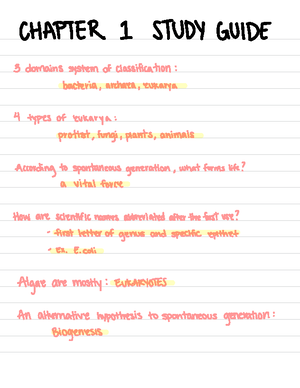 CHAPTER 1 STUDY GUIDE
3 domains system of classification:
bacteria, archaea, eukarya
4 types of eukarya:
protist, fungi, plants, animals
According to spontaneous generation, what forms life?
a vital force
How are scientific names abbreviated after the first use?
- first letter of genus and specific epithet
- Ex. E.coli
Algae are mostly: EUKARYOTES
An alternative hypothesis to spontaneous generation:
Biogenesis